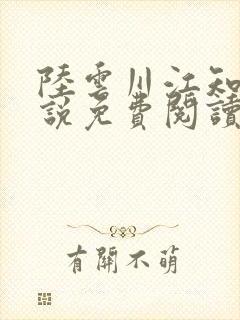 陸雲川江知
說免費閱讀
有關不萌